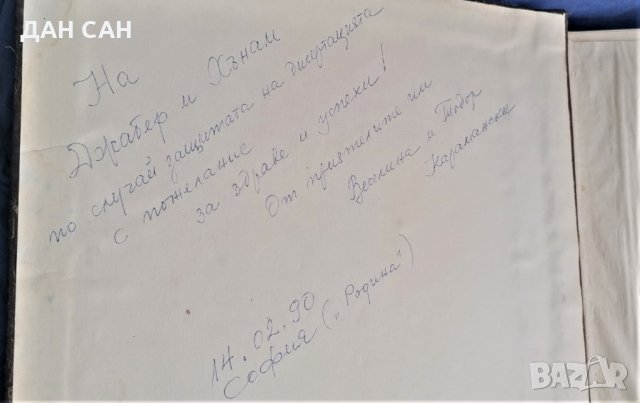 ДАН САН
На
Джабер и Хънам
по случай защитата на дисертацията
с пожелание
за здраве и успехи!
От приятелите им
Веселина и Тодор
Каралански
14.02.90
София („Родина")
BAZAR